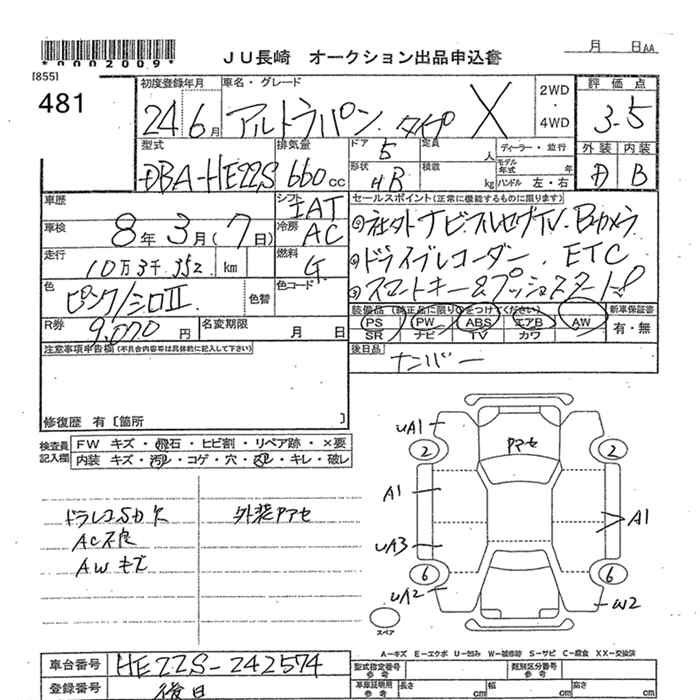 *0002009*
JU長崎 オークション出品申込書
月 日AA
[855]
481
初度登録年月
24 6月
車名・グレード
アルトラパン タイプ X
2WD・4WD
評価点
3.5
型式
DBA-HE22S
排気量
660cc
ドア
5
定員
人
ディーラー・並行
外装 内装
A B
形状
HB
積載
kg
モデル年式
年
ハンドル 左・右
車歴
シフト
IAT
車検
8年 3月(7日)
冷房
AC
走行
10万3千352 km
燃料
G
色
ピンク/シロII
色替
色コード
R券
9,070円
名変期限
月 日
セールスポイント(正常に機能するものに限ります)
社外ナビフルセグTV・Bカメラ
ドライブレコーダー ETC
スマートキー&プッシュスタート!
装備品(純正品に限り○をつけてください)
新車保証書
PS PW ABS エアB AW
有・無
SR ナビ TV カワ
後日品
ナンバー
注意事項申告欄(不具合内容等は具体的に記入して下さい)
修復歴 有[箇所 ]
検査員記入欄
FW キズ・飛石・ヒビ割・リペア跡・×要
内装 キズ・汚レ・コゲ・穴・スレ・キレ・破レ
ドラレコSD欠
AC不良
AWキズ
外装アアセ
UA1
アアセ
2
2
A1
A1
UA3
6
6
UA2
W2
スペア
A-キズ E-エクボ U-凹み W-補修跡 S-サビ C-腐食 XX-交換済
車台番号
HE22S-242574
型式指定番号
参考
類別区分番号
参考
登録番号
後日
車庫証明用
参考
長さ cm
幅 cm
高さ cm